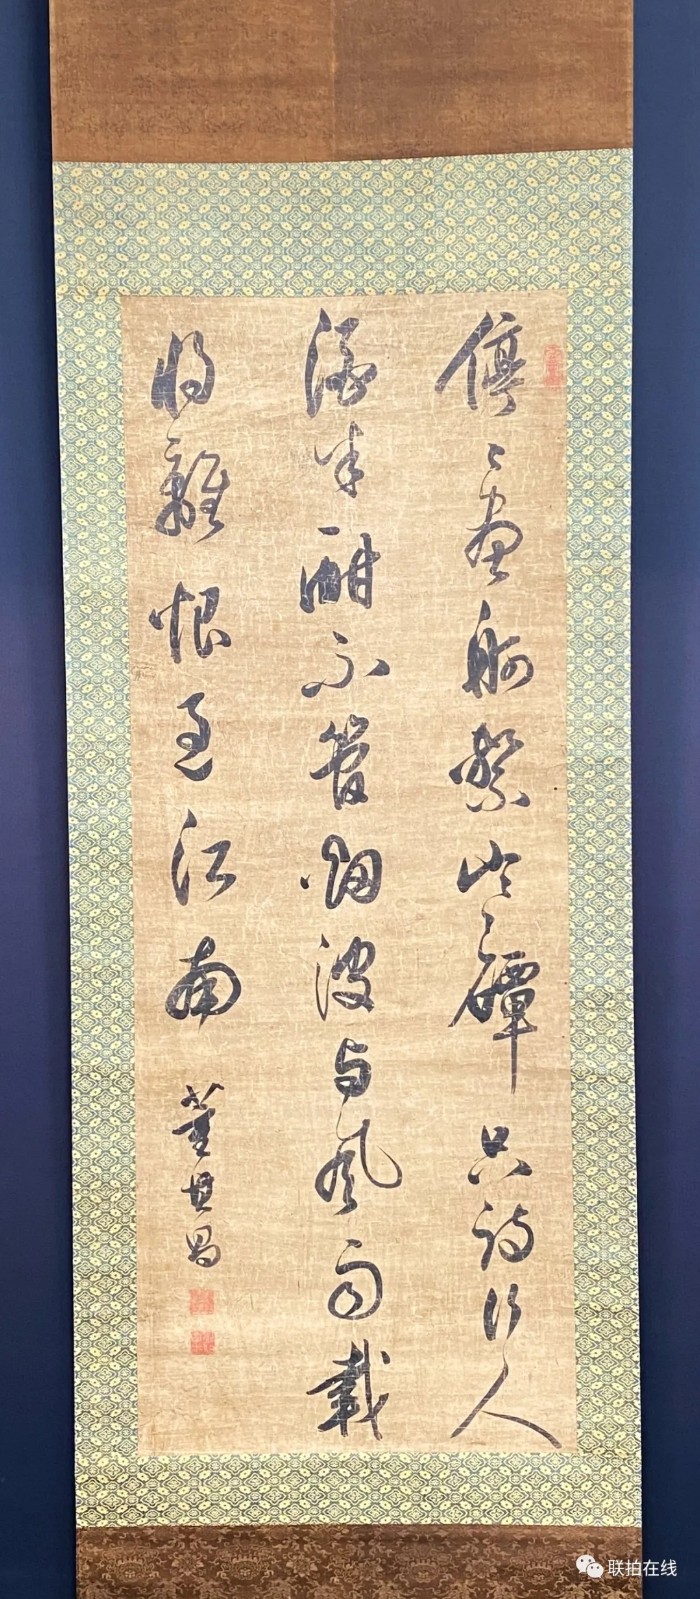 停〻畫舸繫寒潭只待行人
酒半酣不管烟波与風雨載
將離恨過江南
董其昌
联拍在线